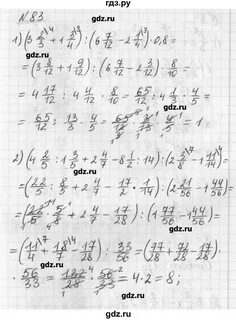 gdz.ru
№83
1) (3 2/3 + 1 3/4) : (6 7/12 - 2 1/4) · 0,8 =
= (3 8/12 + 1 9/12) : (6 7/12 - 2 3/12) : 8/10 =
= 4 17/12 : 4 4/12 · 4/5 = 65/12 : 4 1/3 · 4/5 =
= 65/12 : 13/3 · 4/5 = = 1
2) (4 2/5 : 1 3/5 + 2 4/7 - 8 1/2 : 14) : (2 3/8 - 1 11/14) =
= (22/5 : 8/5 + 2 4/7 - 17/2 · 1/14) : (2 21/56 - 1 44/56) =
= (22/5 · 5/8 + 2 4/7 - 17/28) : (1 77/56 - 1 44/56) =
= (11/4 + 18/7 - 17/28) : 33/56 = (77/28 + 72/28 - 17/28) ·
· 56/33 = 132/28 · 56/33 = 4 · 2 = 8;